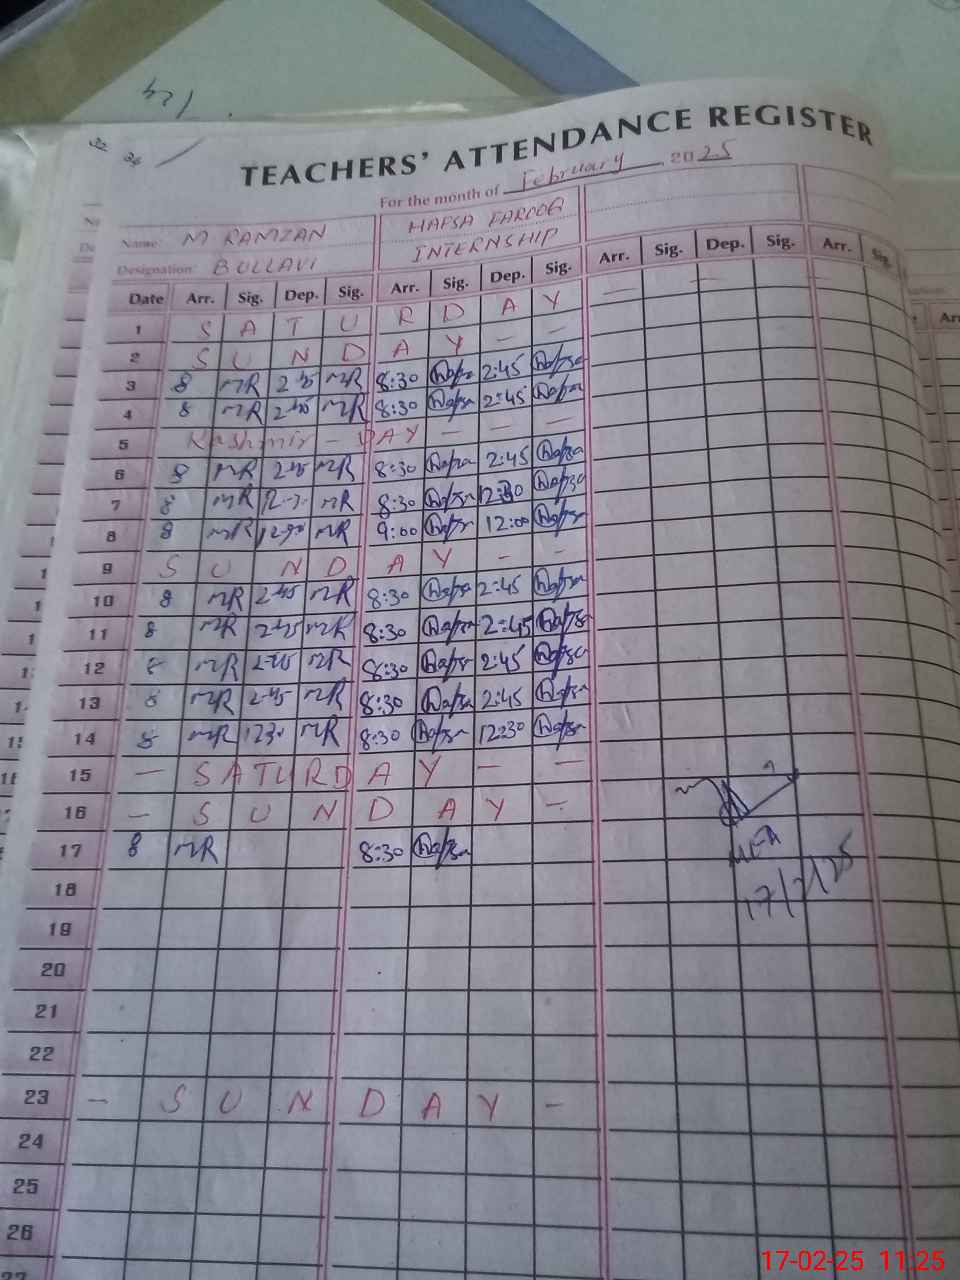 32 34
TEACHERS' ATTENDANCE REGISTER
For the month of February, 2025
Name: M RAMZAN HAFSA FAROOG
Designation: BULLAVI INTERNSHIP
Date Arr. Sig. Dep. Sig. Arr. Sig. Dep. Sig. Arr. Sig. Dep. Sig. Arr. Sig.
1 S A T U R D A Y — —
2 S U N D A Y - -
3 8 MR 2 45 MR 8:30 Hafsa 2:45 Hafsa
4 8 MR 2 45 MR 8:30 Hafsa 2:45 Hafsa
5 Kashmir - DAY - - -
6 8 MR 2 45 MR 8:30 Hafsa 2:45 Hafsa
7 8 MR 12-3 MR 8:30 Hafsa 12:30 Hafsa
8 8 MR MR 9:00 Hafsa 12:00 Hafsa
9 S U N D A Y - -
10 8 MR 2 45 MR 8:30 Hafsa 2:45 Hafsa
11 8 MR 2 45 MR 8:30 Hafsa 2:45 Hafsa
12 8 MR 2-45 MR 8:30 Hafsa 2:45 Hafsa
13 8 MR 2-45 MR 8:30 Hafsa 2:45 Hafsa
14 8 MR 1230 MR 8:30 Hafsa 12:30 Hafsa
15 — S A T U R D A Y — —
16 — S U N D A Y -
17 8 MR 8:30 Hafsa
MEA
17/2/25
18
19
20
21
22
23 - S U N D A Y -
24
25
26
27
17-02-25 11:25